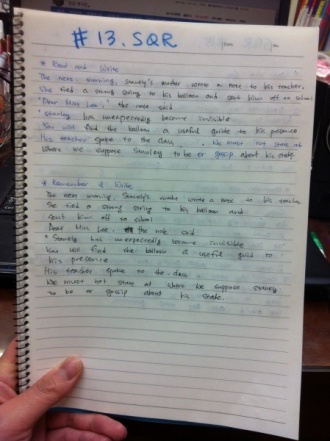 #13. SQR
* Read and Write
The next morning, Stanely's mother wrote a note to his teacher.
She tied a strong string to his balloon and sent him off to school
"Dear Miss Lee," the note said
"Stanley has unexpectedly become invisible
You will find the balloon a useful guide to his presence
His teacher spoke to the class. We must not stare at
where we suppose Stanley to be or gossip about his state.
* Remember & Write
The next morning, Stanely's mother wrote a note to his teacher
She tied a strong string to his balloon and
sent him off to school
Dear Miss Lee, the note said
"Stanely has unexpectedly become invisible
You will find the balloon a useful guid to
his presence
His teacher spoke to the class
We must not stare at where we suppose Stanely
to be or gossip about his state.